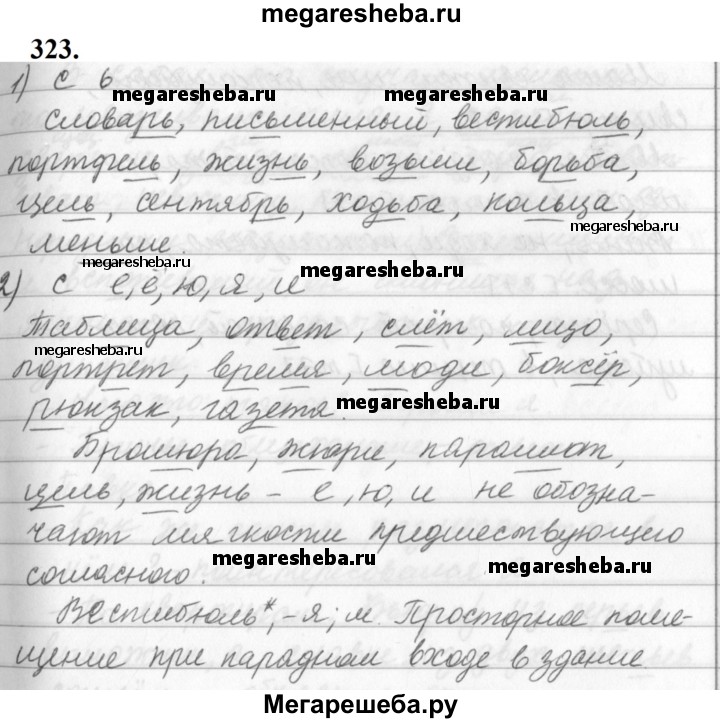 megaresheba.ru
323.
1) с ь
megaresheba.ru megaresheba.ru
словарь, письменный, вестибюль,
портфель, жизнь, возьми, борьба,
цель, сентябрь, ходьба, кольца,
megaresheba.ru
меньше.
megaresheba.ru
2) с е, ё, ю, я, и
megaresheba.ru
Таблица, ответ, слёт, лицо,
megaresheba.ru
портрет, время, люди, боксёр,
рюкзак, газета.
megaresheba.ru
Брошюра, жюри, парашют,
цель, жизнь – е, ю, и не обозна-
чают мягкости предшествующего
согласного.
megaresheba.ru
Вестибюль*, -я; м. Просторное поме-
щение при парадном входе в здание.
Мегарешеба.ру